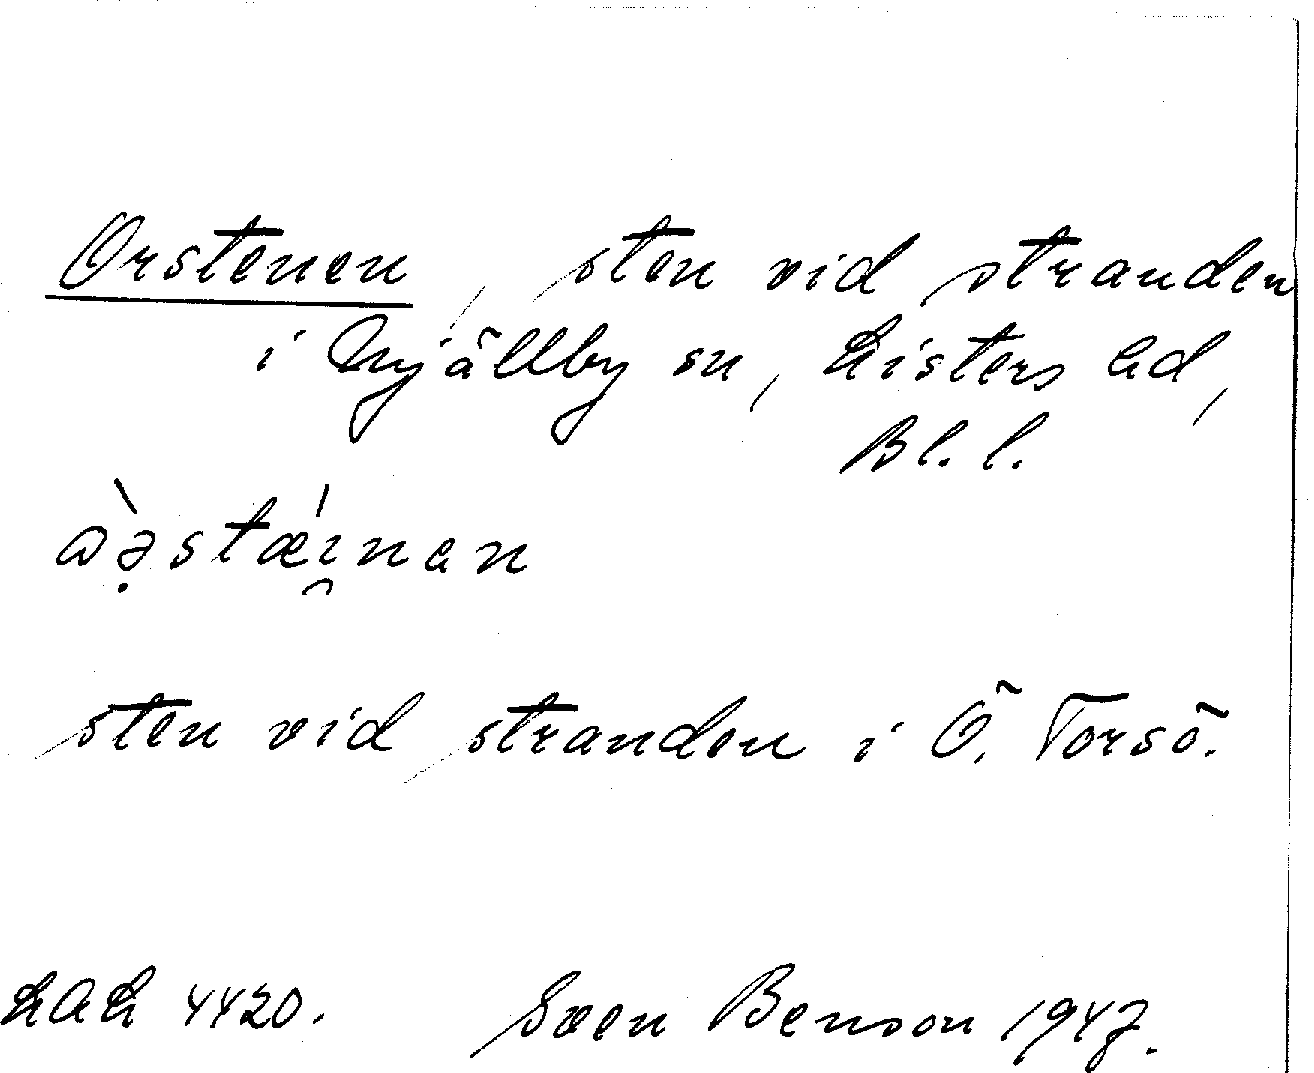 Orstenen, sten vid stranden
i Mjällby sn, Listers hd,
Bl. l.
ὰə̣stǽı̯nan
sten vid stranden i Ö. Torsö.
LAL 4420. Sven Benson 1947.